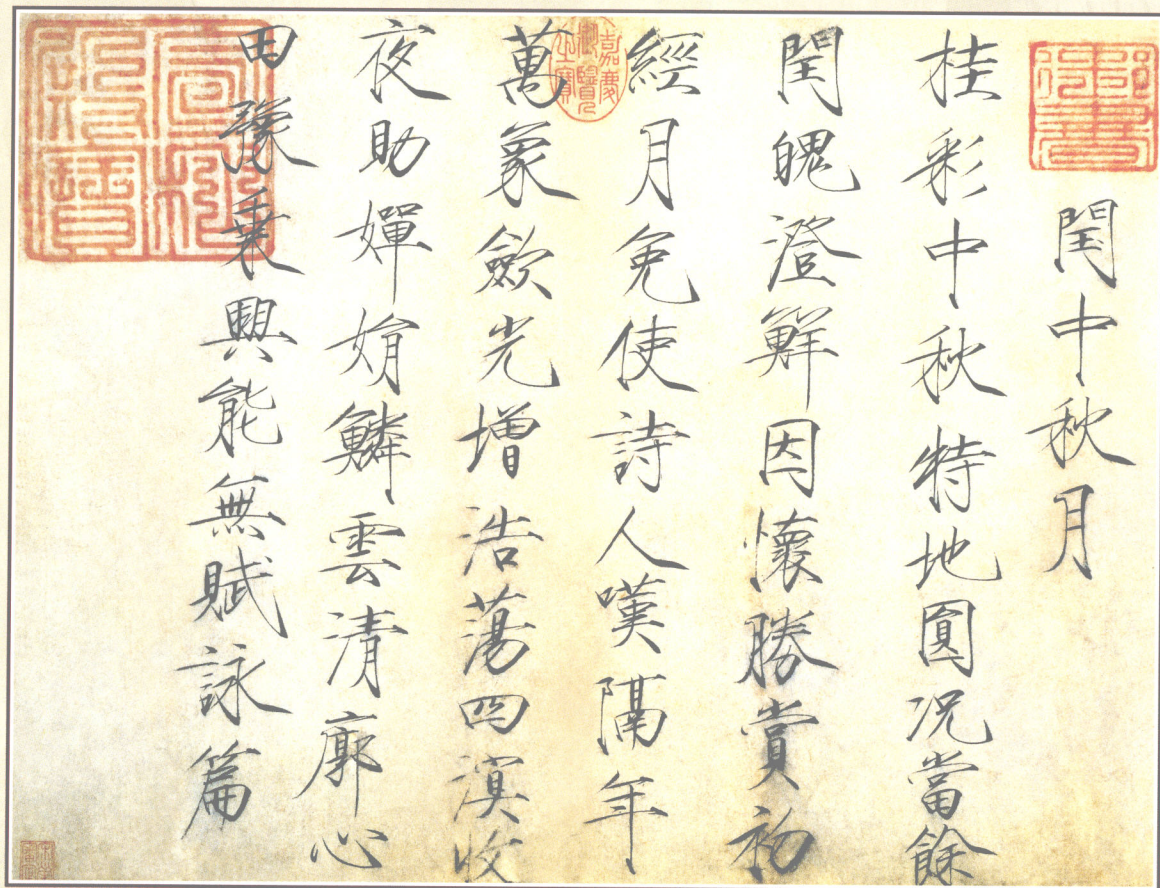 御書
閏中秋月
桂彩中秋特地圓况當餘
閏魄澄鮮因懷勝賞初
經月免使詩人嘆隔年
嘉慶御覽之寶
萬象歛光增浩蕩四溟收
夜助嬋娟鱗雲清廓心
田豫乘興能無賦詠篇